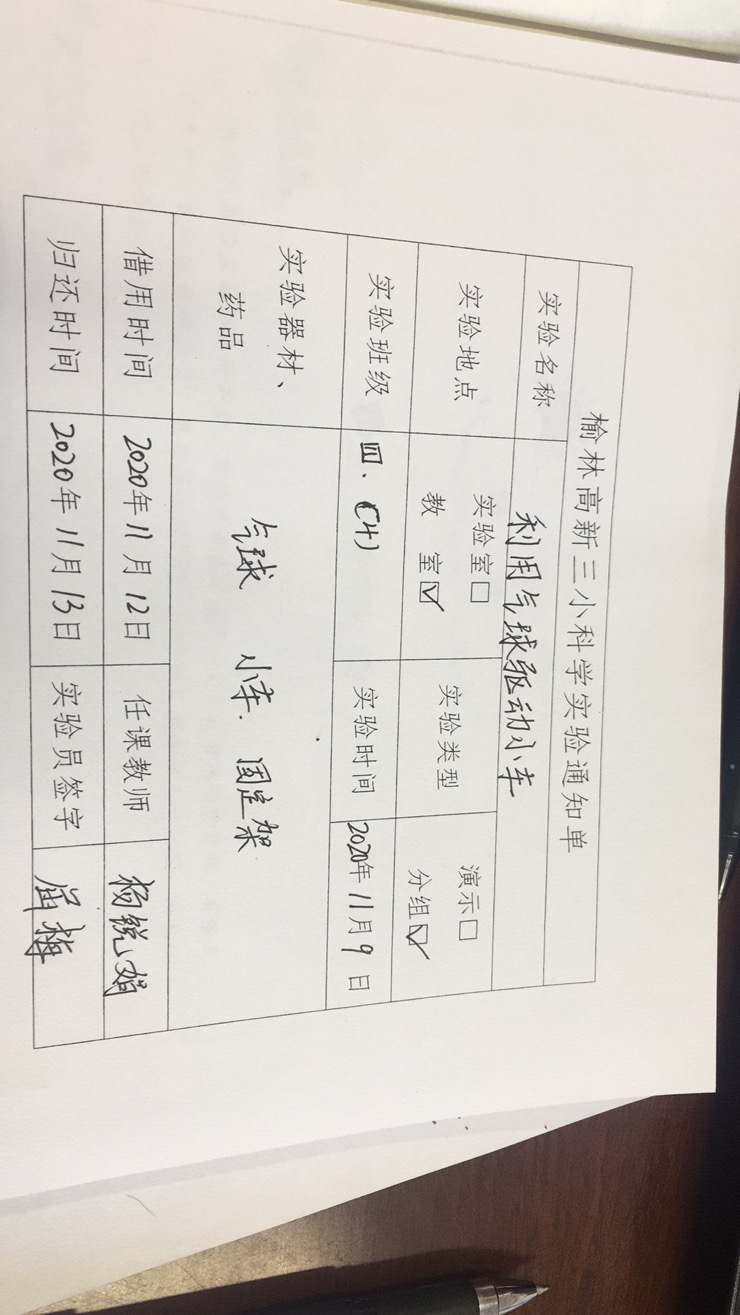 榆林高新三小科学实验通知单
实验名称 利用气球驱动小车
实验地点 实验室□ 教 室☑ 实验类型 演示□ 分组☑
实验班级 四、(4) 实验时间 2020年11月9日
实验器材、药品 气球 小车. 固定架
借用时间 2020年11月12日 任课教师 杨锐娟
归还时间 2020年11月13日 实验员签字 屈梅